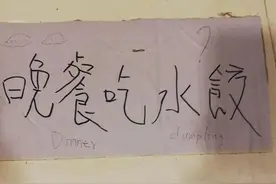 晚餐吃水餃
Dinner dumpling